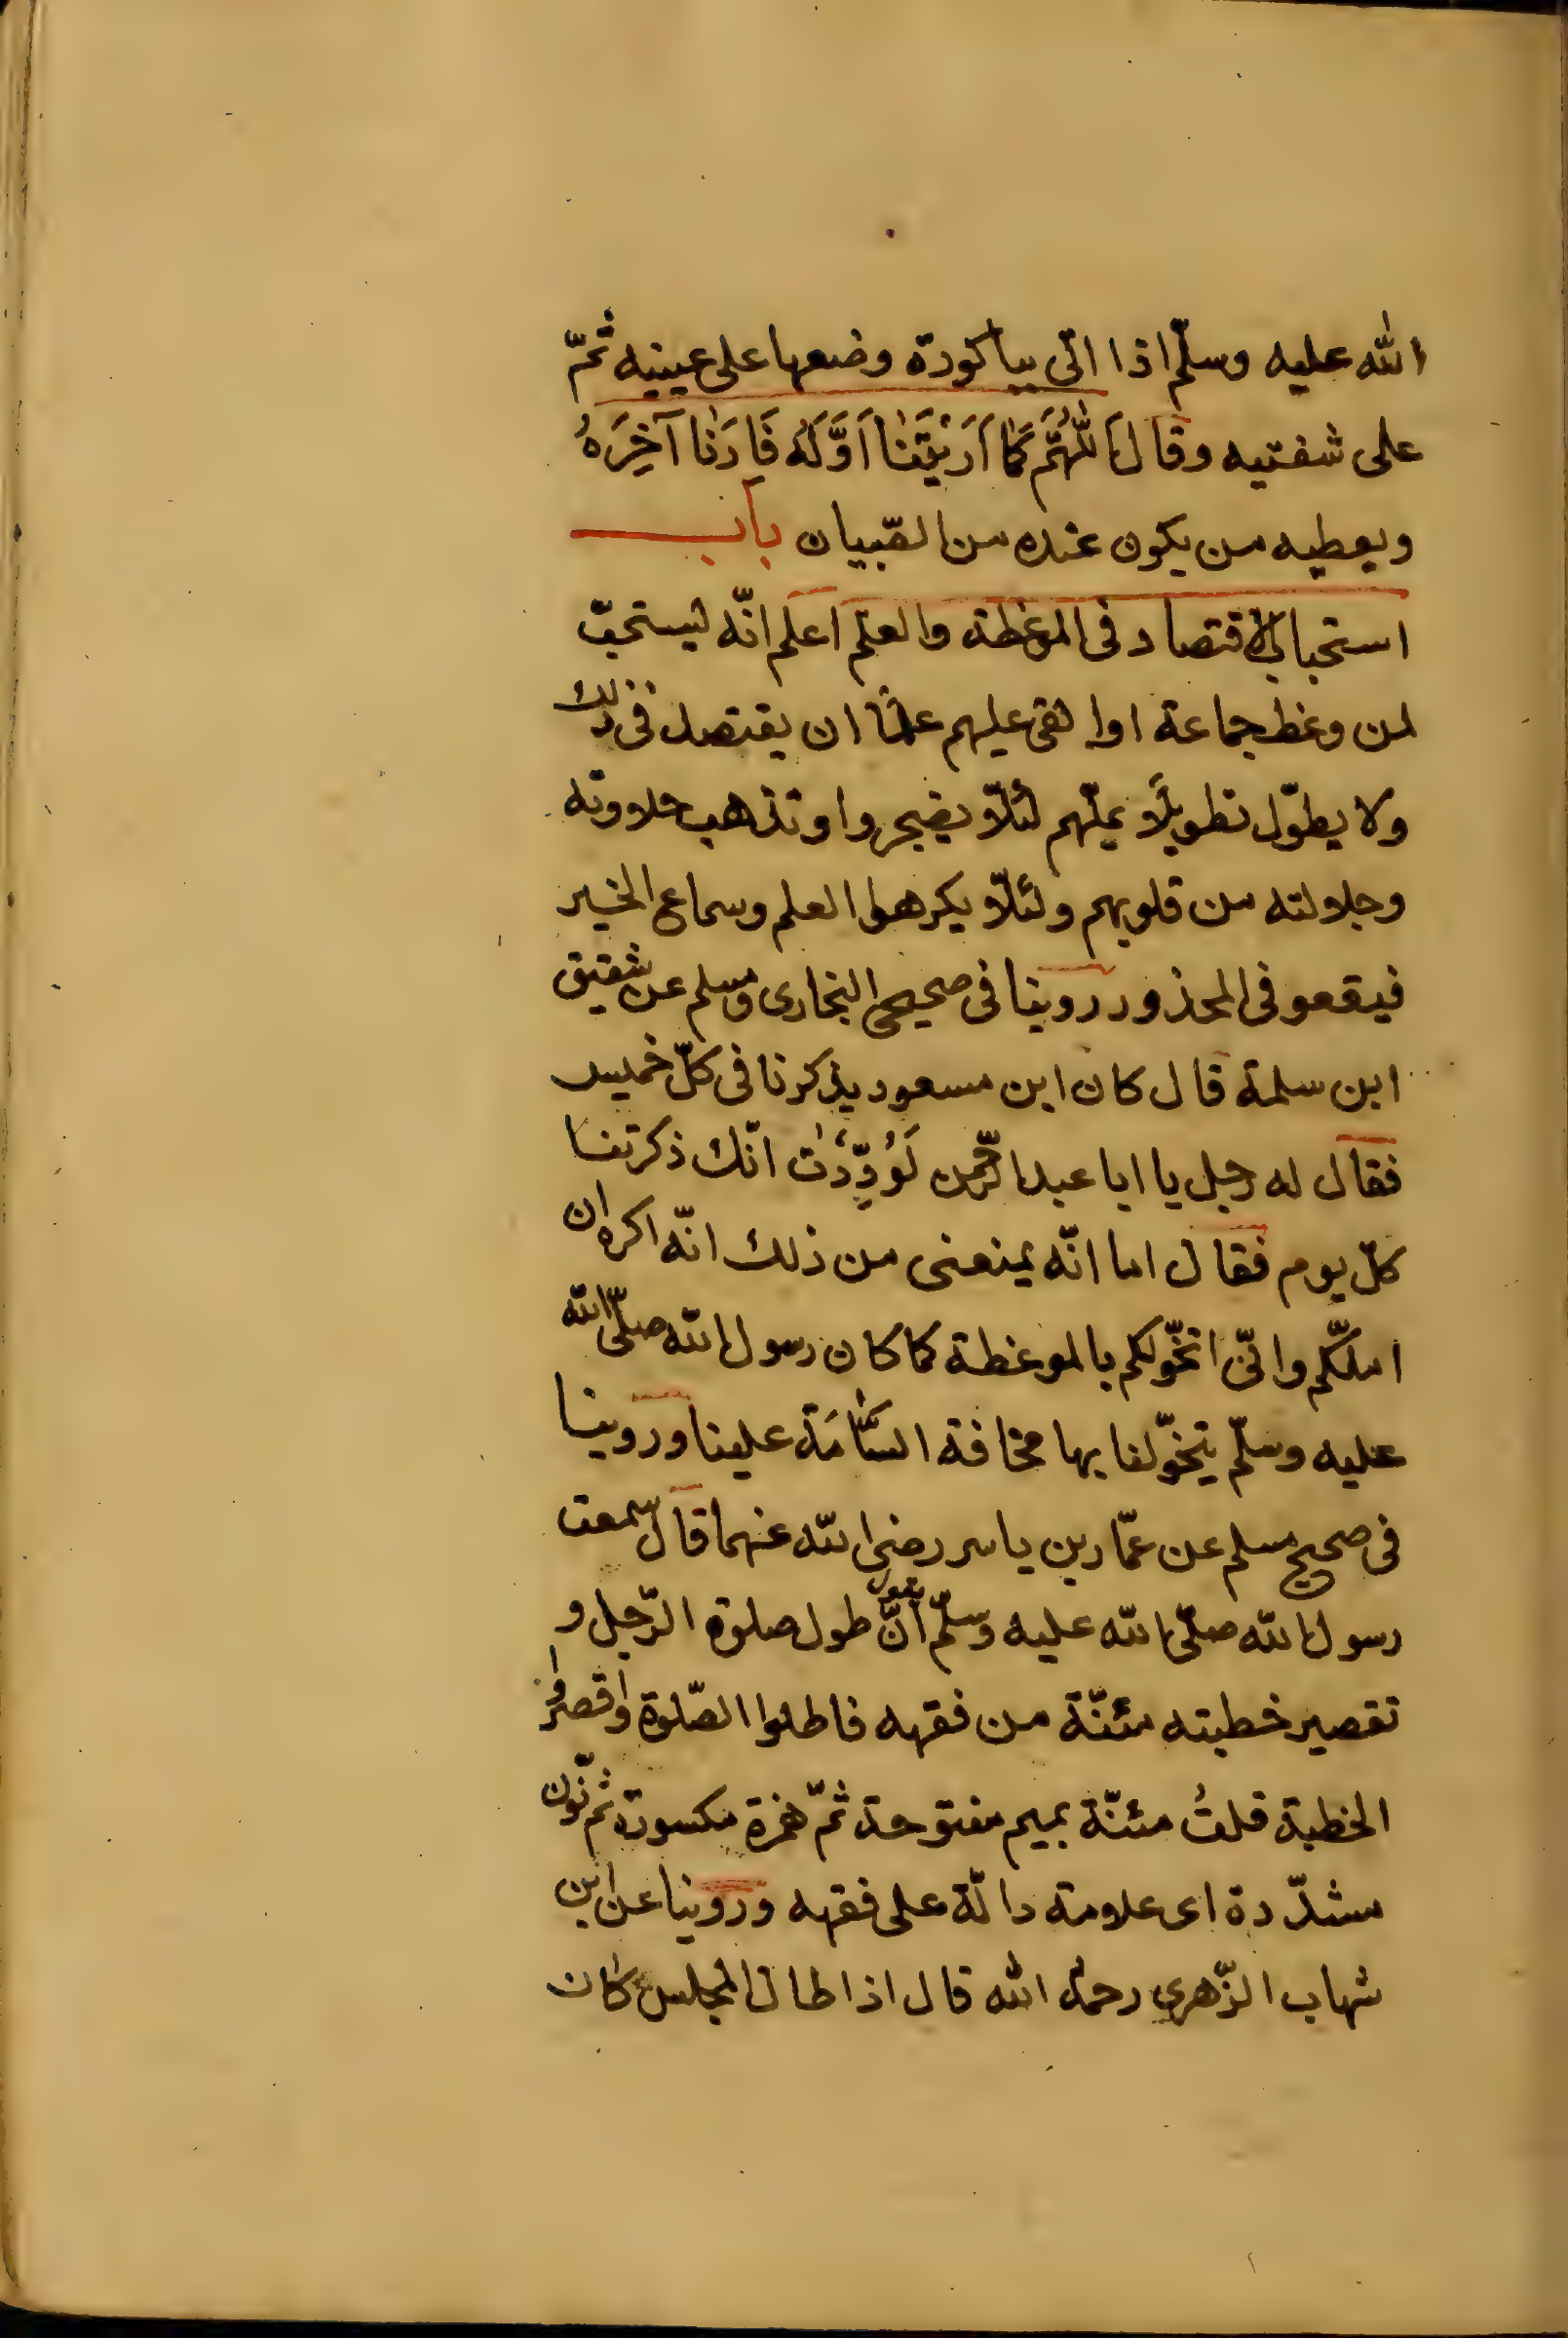 الله عليه وسلّم اذا اتى بباكورة وضعها على عينيه ثمّ
على شفتيه وقال اَللّٰهُمَّ كَمَا اَرَيْتَنَا اَوَّلَهُ فَاَرِنَا آخِرَهُ
ويعطيه من يكون عنده من الصّبيان باب
استحباب الاقتصاد فى الموعظة والعلم اعلم انّه ليستحبّ
لمن وعظ جماعة او القى عليهم علمًا ان يقتصد فى ذلك
ولا يطوّل تطويلًا يملّهم لئلّا يضجروا وتذهب حلاوته
وجلالته من قلوبهم ولئلّا يكرهوا العلم وسماع الخير
فيقعو فى المحذور روينا فى صحيحى البخارى ومسلم عن شقيق
ابن سلمة قال كان ابن مسعود يذكرنا فى كلّ خميس
فقال له رجل يا ابا عبد الرّحمن لَوُدِّدْتُ انّك ذكرتنا
كلّ يوم فقال اما انّه يمنعنى من ذلك انّه اكره ان
املّكم وانّى اتخوّلكم بالموعظة كما كان رسول الله صلّى الله
عليه وسلّم يتخوّلنا بها مخافة السَّاٰمَة علينا وروينا
فى صحيح مسلم عن عمّار بن ياسر رضى الله عنهما قال سمعت
رسول الله صلّى الله عليه وسلّم يقول انّ طول صلوة الرّجل و
تقصير خطبته مئنّة من فقهه فاطلوا الصّلوة واقصروا
الخطبة قلتُ مئنّة بميم مفتوحة ثمّ همزة مكسورة ثمّ نون
مشدّدة اى علامة دالّة على فقهه وروينا عن ابن
شهاب الزّهرى رحمه الله قال اذا طال المجلس كان